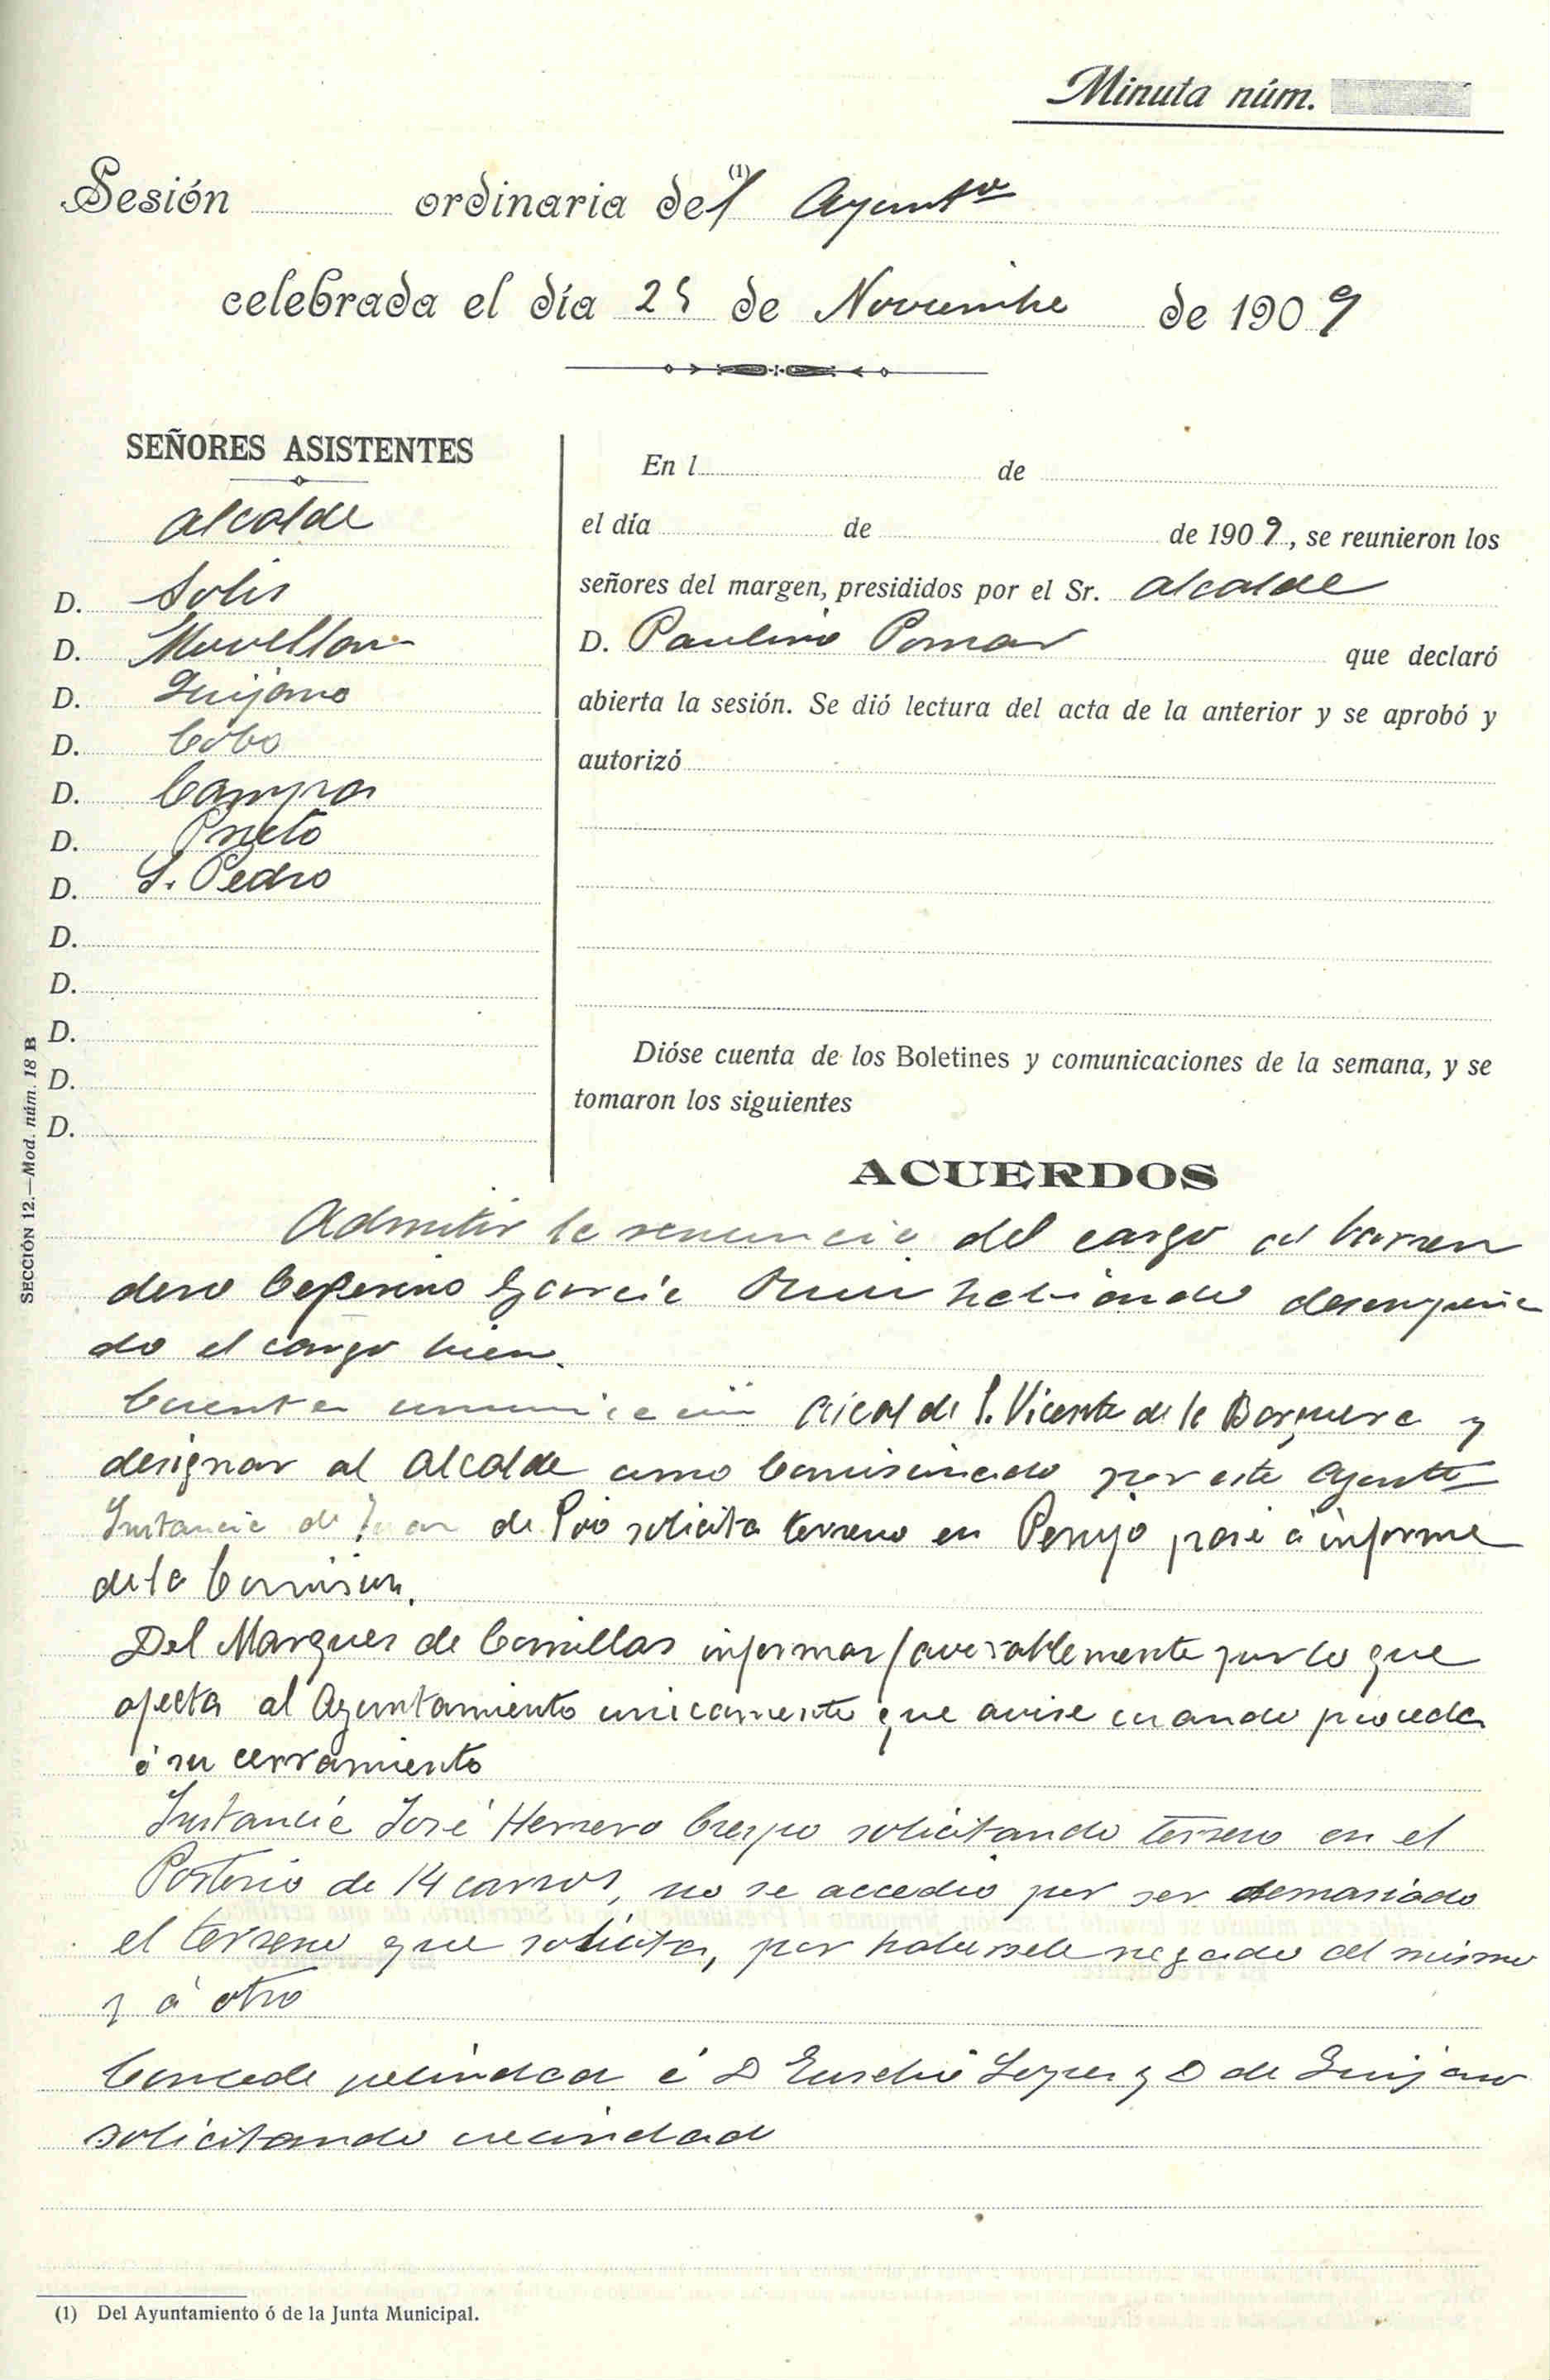 Minuta núm.
Sesión ordinaria del (1) Ayuntº
celebrada el día 25 de Noviembre de 1909
SEÑORES ASISTENTES
Alcalde
D. Solis
D. Movellan
D. Quijano
D. Cobo
D. Campos
D. Prieto
D. S. Pedro
D.
D.
D.
D.
D.
En l de
el día de de 1909, se reunieron los
señores del margen, presididos por el Sr. Alcalde
D. Paulino Pomar que declaró
abierta la sesión. Se dió lectura del acta de la anterior y se aprobó y
autorizó
Dióse cuenta de los Boletines y comunicaciones de la semana, y se
tomaron los siguientes
ACUERDOS
Admitir la renuncia del cargo al barren
dero Ceferino Garcia Ruiz habiendo desempeña
do el cargo bien.
Cuenta comunicación Alcalde S. Vicente de la Barquera y
designar al Alcalde como Comisionado por este Ayuntº
Instancia de Juan de Pió solicita terreno en Perujo pase á informe
de la Comision.
Del Marques de Comillas informar favorablemente por lo que
afecta al Ayuntamiento unicamente que avise cuando proceda
á su cerramiento
Instancia José Herrero Crespo solicitando terreno en el
Portorio de 14 carros, no se accedió por ser demasiado
el terreno que solicita, por habersele negado al mismo
y á otro
Concede vecindad á D Eusebio Lopez y D de Quijano
solicitando vecindad
(1) Del Ayuntamiento ó de la Junta Municipal.
SECCIÓN 12.—Mod. núm. 18 B